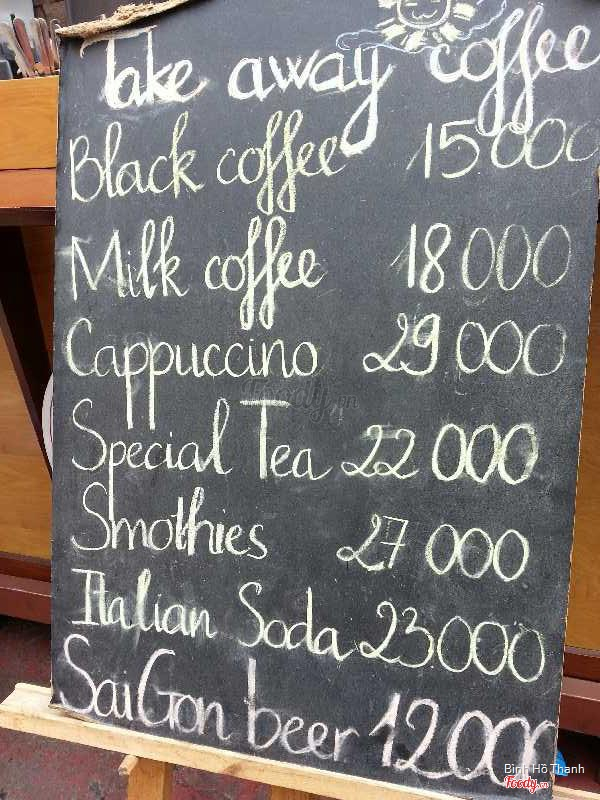 Take away coffee
Black coffee 15000
Milk coffee 18000
Cappuccino 29000
Special Tea 22000
Smothies 27000
Italian Soda 23000
SaiGon beer 12000
Bình Hồ Thanh
Foody.vn